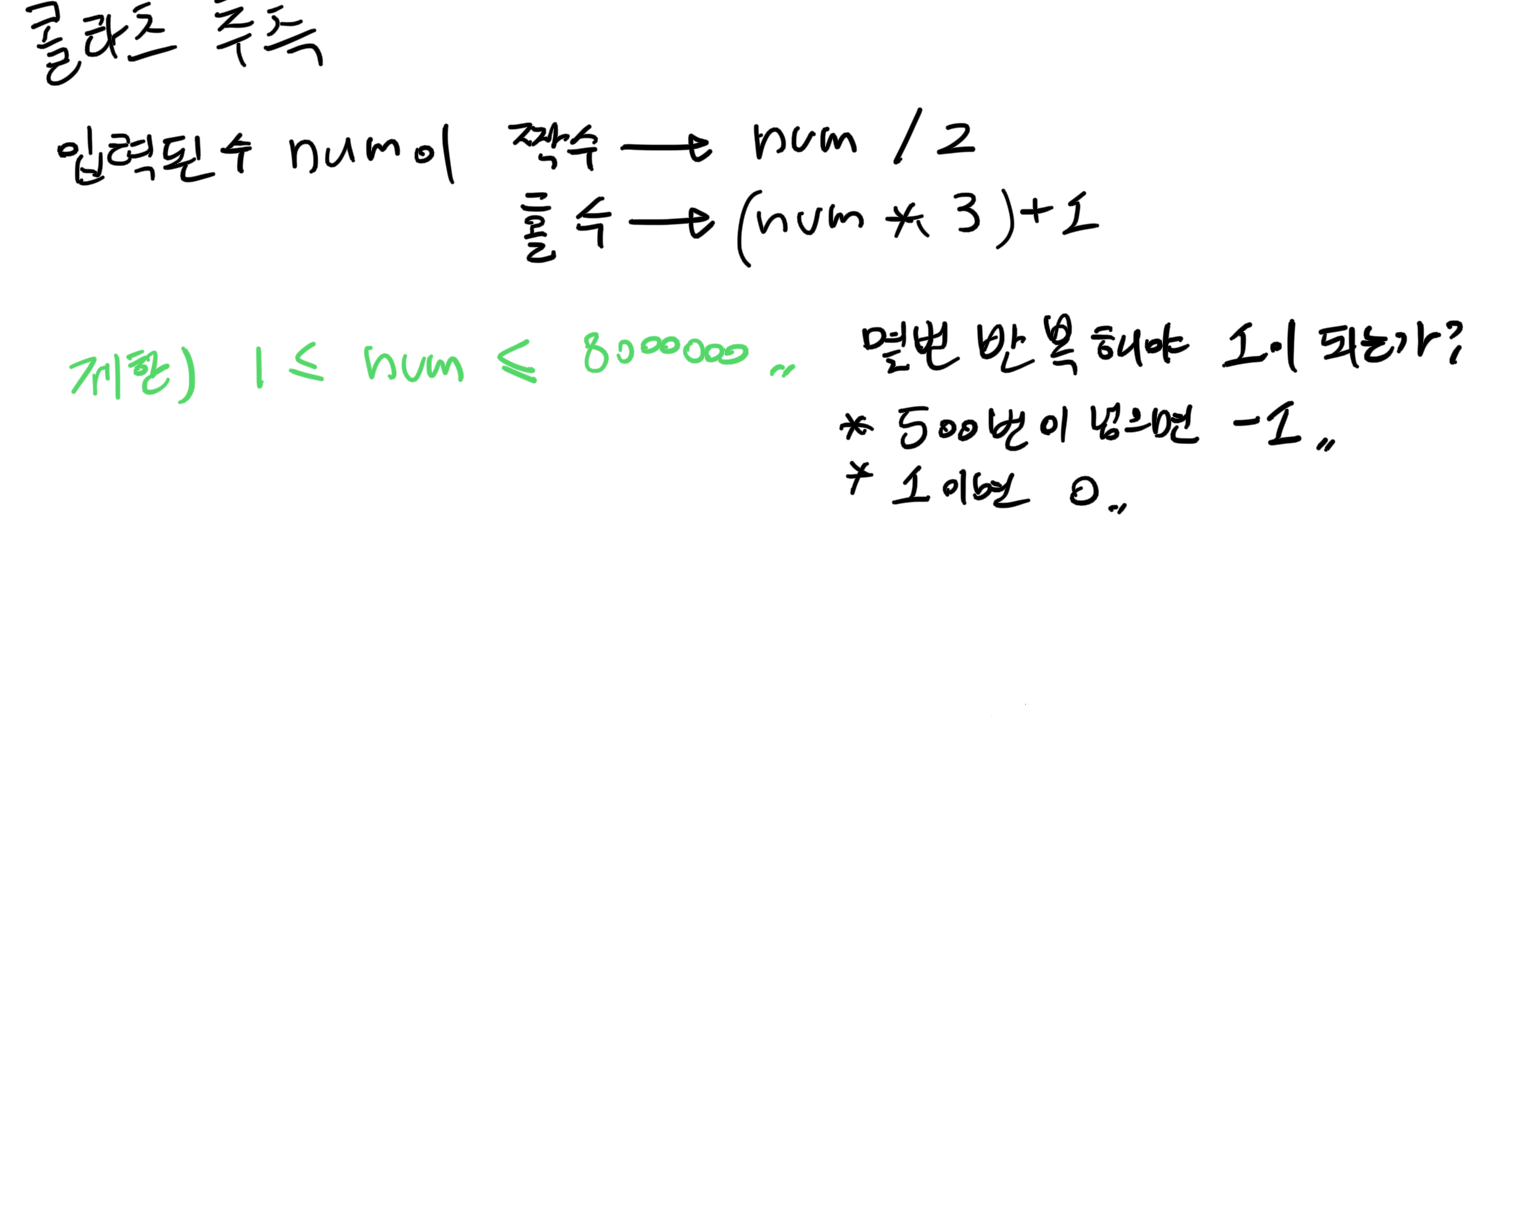 콜라츠 추측
입력된 수 num이 짝수 → num / 2
홀수 → (num * 3) + 1
제한) 1 ≤ num ≤ 8000000 〃
몇번 반복해야 1이 되는가?
* 500번이 넘으면 -1 〃
* 1이면 0 〃